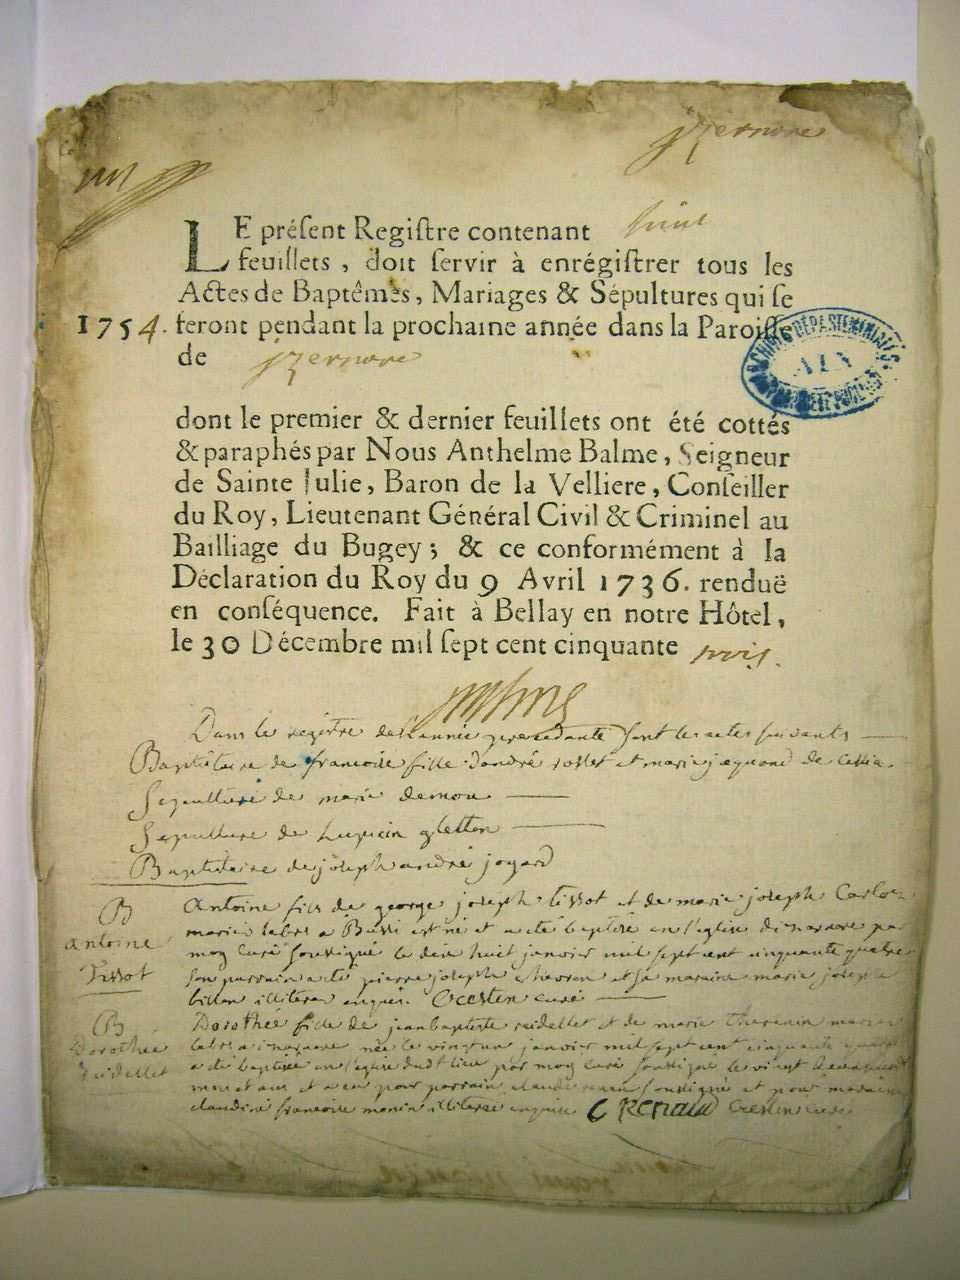 jzernore
LE préſent Regiſtre contenant huit
feuillets, doit ſervir à enrégiſtrer tous les
Actes de Baptêmes, Mariages & Sépultures qui ſe
1754. feront pendant la prochaine année dans la Paroiſſe
de jzernore
ARCHIVES DÉPARTEMENTALES
AIN
dont le premier & dernier feuillets ont été cottés
& paraphés par Nous Anthelme Balme, Seigneur
de Sainte Julie, Baron de la Velliere, Conſeiller
du Roy, Lieutenant Général Civil & Criminel au
Bailliage du Bugey; & ce conformément à la
Déclaration du Roy du 9 Avril 1736. renduë
en conſéquence. Fait à Bellay en notre Hôtel,
le 30 Décembre mil ſept cent cinquante trois.
Dans le registre de l'année precedante sont les actes suivants
Baptistaire de francoise fille d'andré rosset et marie jaquand de
Sepulture de marie
Sepulture de Lupicin
Baptistaire de joseph andré joyard
B Antoine fils de george joseph tissot et de marie joseph
antoine est né et a eté baptisé en l'eglise d'izernore par
Tissot moy curé soussigné le dix huit janvier mil sept cent cinquante quatre
son parrain a eté pierre joseph et sa maraine marie joseph
illiteres enquis. Crestin curé
B Dorothée fille de jean baptiste reidellet et de marie
Dorothée née le vingt un janvier mil sept cent cinquante quatre
reidellet a eté baptisée en l'eglise dudt lieu par moy curé soussigné le vingt
mois et ans et a eu pour parrain claude renau soussigné et pour maraine
claudine francoise illiterée enquise C Renaud Crestin curé